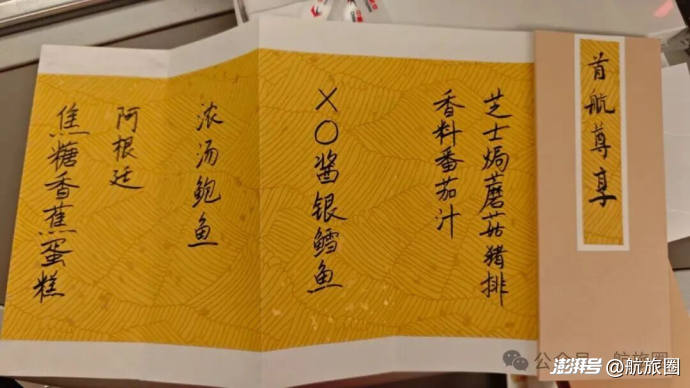 首航尊享
芝士焗蘑菇猪排
香料番茄汁
XO酱银鳕鱼
浓汤鲍鱼
阿根廷
焦糖香蕉蛋糕
公众号·航旅圈
澎湃号@航旅圈